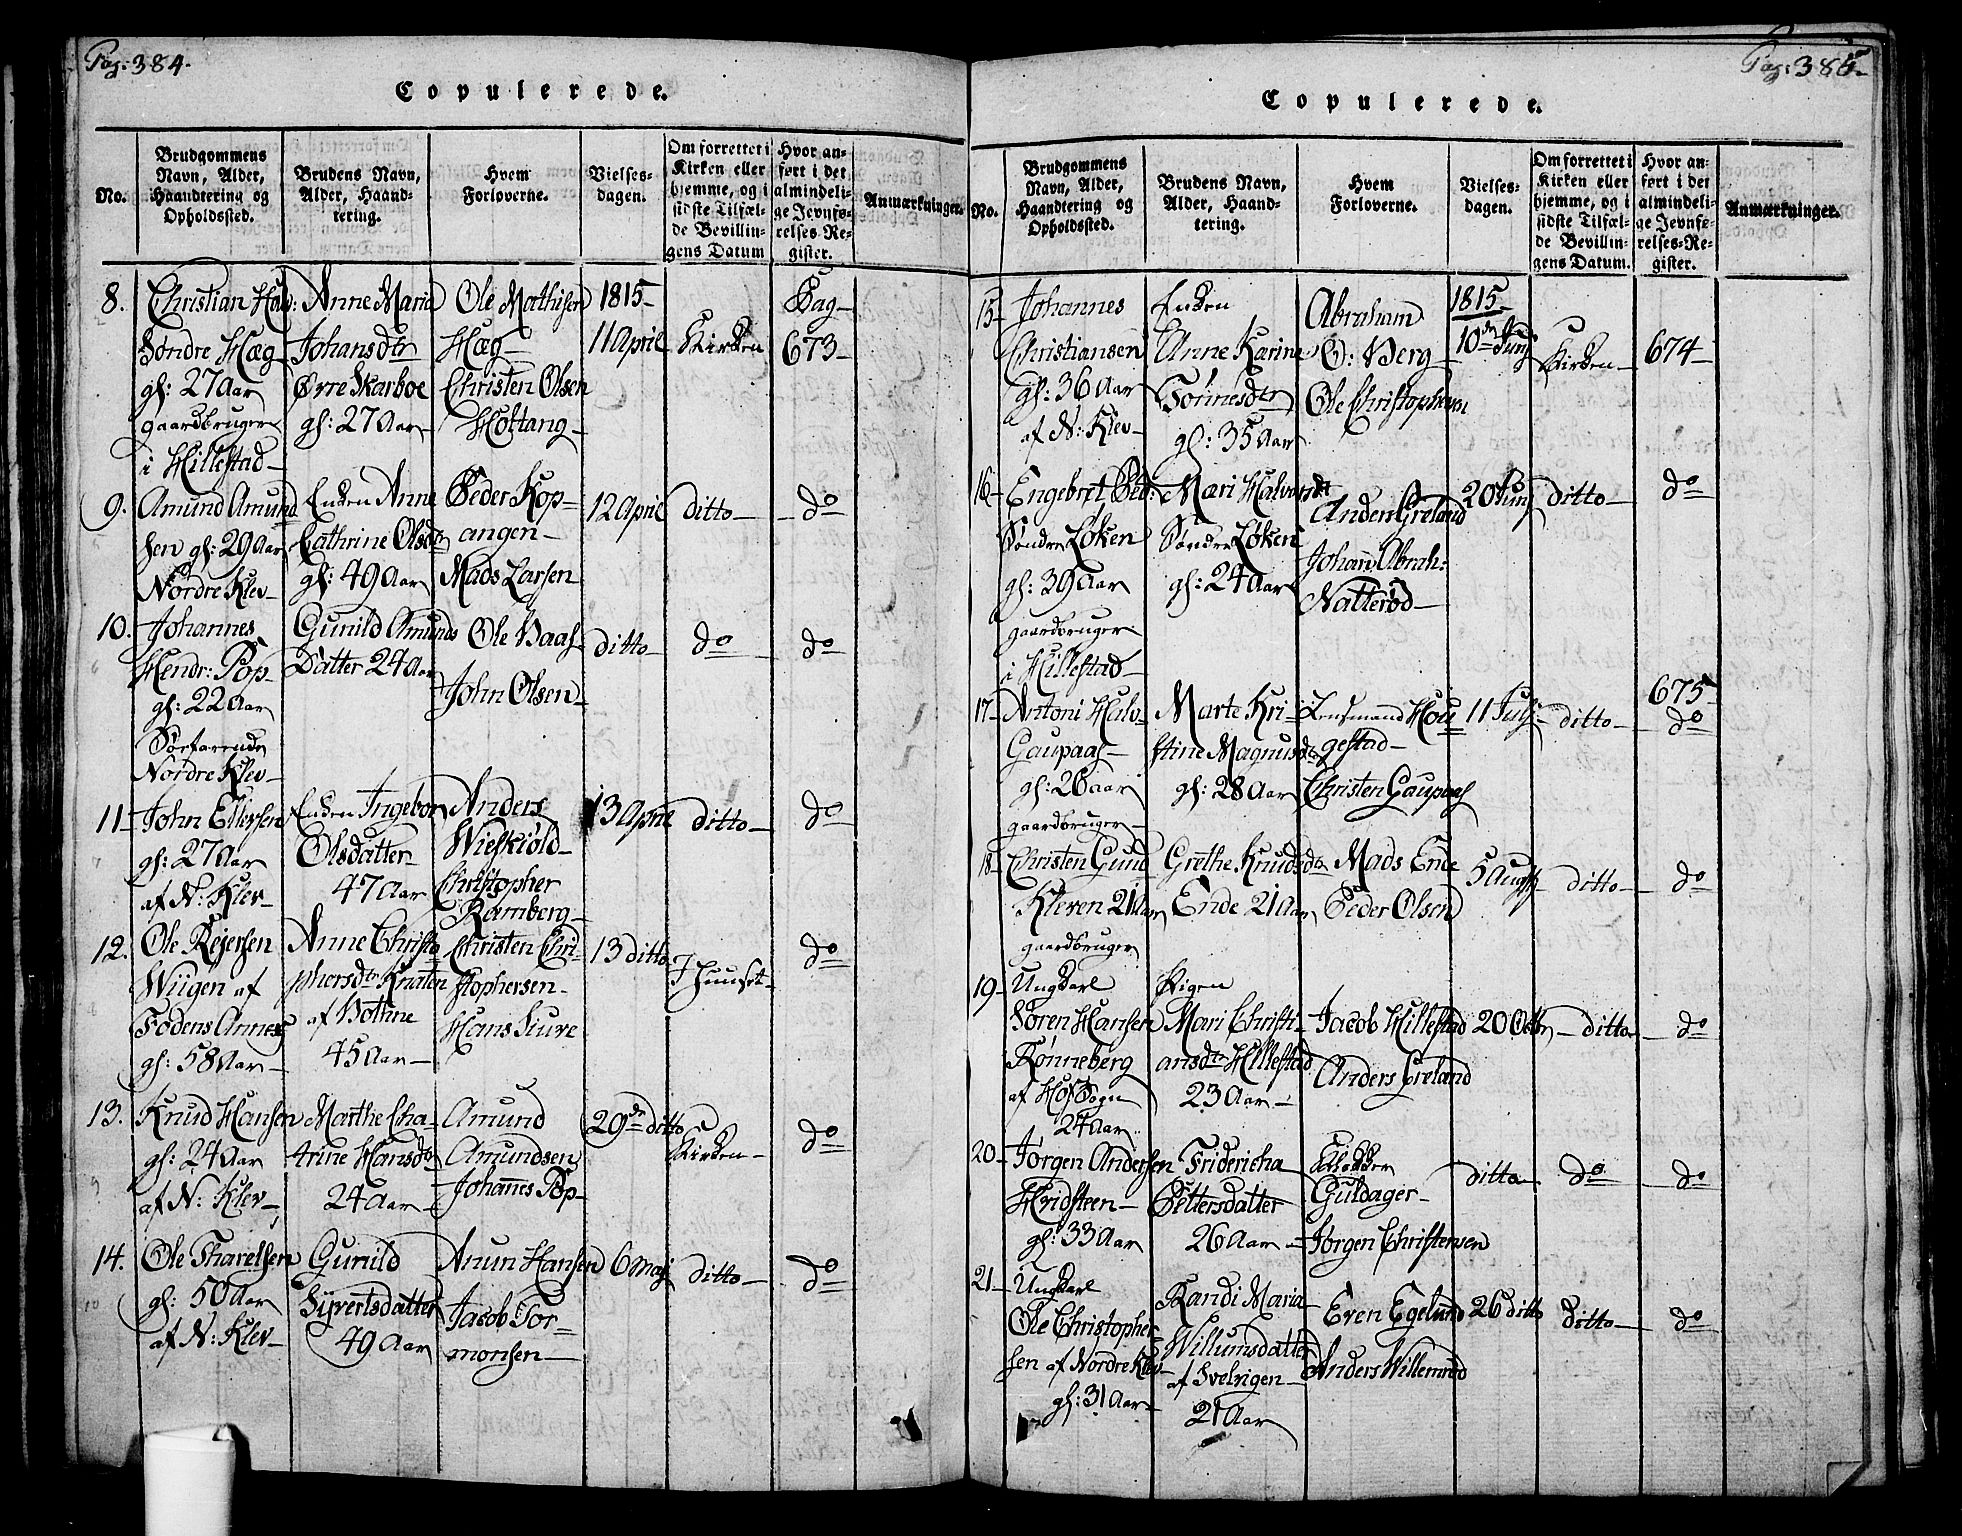 Pag: 384.
Copulerede.
No.
Brudgommens Navn, Alder, Haandtering og Opholdssted.
Brudens Navn, Alder, Haandtering.
Hvem Forloverne.
Vielsesdagen.
Om forrettet i Kirken eller hjemme, og i sidste Tilfælde Bevillingens Datum
Hvor anført i det almindelige Jevnførelses-Register.
Anmærkninger.
8.
Christian Halv:
Søndre Hæg
gl: 27 Aar
gaardbruger
i Hillestad
Anne Maria
Johansdtr
Øvre Skarboe
gl: 27 Aar
Ole Mathisen
Hæg
Christen Olsen
Holtang
1815
11 April
Kirken
Pag
673
9.
Amund Amund
sen gl: 29 Aar
Nordre Klev
Enken Anne
Cathrine Olsdr
gl: 49 Aar
Peder Kop-
angen
Mads Larsen
12 April
ditto
do
10.
Johannes
Hendr: Pop
gl: 22 Aar
Søefarende
Nordre Klev
Gunild Amunds
Datter 24 Aar
Ole Haas
John Olsen
ditto
do
do
11
John Ellefsen
gl: 27 Aar
af N: Klev
Enken Ingebor
Olsdatter
47 Aar
Anders
Wieskiøld
Christopher
Ramberg
13 April
ditto
do
12.
Ole Rejersen
Wiigen af
Fodens Annex
gl: 58 Aar
Anne Christo
phersdtr Knaten
af Bothne
45 Aar
Christen Chri-
stophersen
Hans Liure
13 ditto
I Huuset
do
13.
Knud Hansen
gl: 24 Aar
af N: Klev
Marthe Cha
trine Hansdr
24 Aar
Amund
Amundsen
Johannes Pop
29de ditto
Kirken
do
14.
Ole Tharelsen
gl: 50 Aar
af N: Klev
Gunild
Syvertsdatter
49 Aar
Anun Hansen
Jacob Tor-
monsen
6 Maj
ditto
do
Pag: 385
Copulerede.
No.
Brudgommens Navn, Alder, Haandtering og Opholdssted.
Brudens Navn, Alder, Haandtering.
Hvem Forloverne.
Vielsesdagen.
Om forrettet i Kirken eller hjemme, og i sidste Tilfælde Bevillingens Datum.
Hvor anført i det almindelige Jevnførelses-Register.
Anmærkninger.
15
Johannes
Christiansen
gl: 36 Aar
af N: Klev
Enken
Anne Karine
Tønnesdtr
gl: 35 Aar
Abraham
O: Berg
Ole Christophersen
1815
10de Junj
Kirken
674
16
Engebret Ped:
Søndre Løken
gl: 39 Aar
gaardbruger
i Hillestad
Mari Halvorsdt
Søndre Løken
gl: 24 Aar
Anders Greland
Johan Abrah:
Natterød
20 Junj
ditto
do
17
Antoni Halv
Gaupaas
gl: 26 aar
gaardbruger
Marte Kri-
stine Magnusdtr
gl: 28 Aar
Lensmand Hou
gestad
Christen Gaupaas
11 Julj
ditto
675
do
18
Christen Gund
Kleven 21 Aar
gaardbruger
Grethe Knudsdtr
Ende 21 Aar
Mads Ende
Peder Olsen
5 August
ditto
do
19
Ungkarl
Søren Hansen
Rønneberg
af Hof Sogn
24 Aar
Pigen
Mari Christi-
ansdtr Hillestad
23 Aar
Jacob Hillestad
Anders Greland
20 Octbr
ditto
do
20
Jørgen Andersen
Hvidsteen
gl: 33 Aar
Fridericha
Pettersdatter
26 Aar
Klokker
Guldager
Jørgen Christensen
ditto
do
do
21
Ungkarl
Ole Christopher-
sen af Nordre Klev
gl: 31 Aar
Randi Maria
Willumsdatter
af Svelvigen
21 Aar
Even Egelund
Anders Willemrød
26 ditto
ditto
do